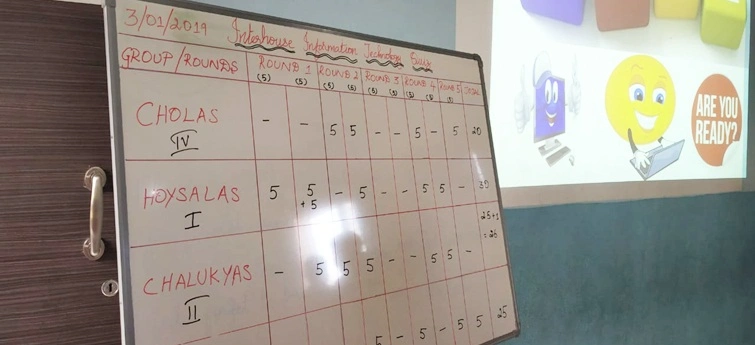 3/01/2019 Interhouse Information Technology Quiz
GROUP/ROUNDS ROUND 1 ROUND 2 ROUND 3 ROUND 4 ROUND 5 TOTAL
(5) (5) (5) (5) (5) (5) (5) (5) (5)
CHOLAS - - 5 5 - - 5 - 5 20
IV
HOYSALAS 5 5 - 5 - - 5 5 - 30
+5
I
25+1
= 26
CHALUKYAS - 5 5 5 - - 5 5 -
II
5 - 5 - 5 5 25
ARE YOU
READY?